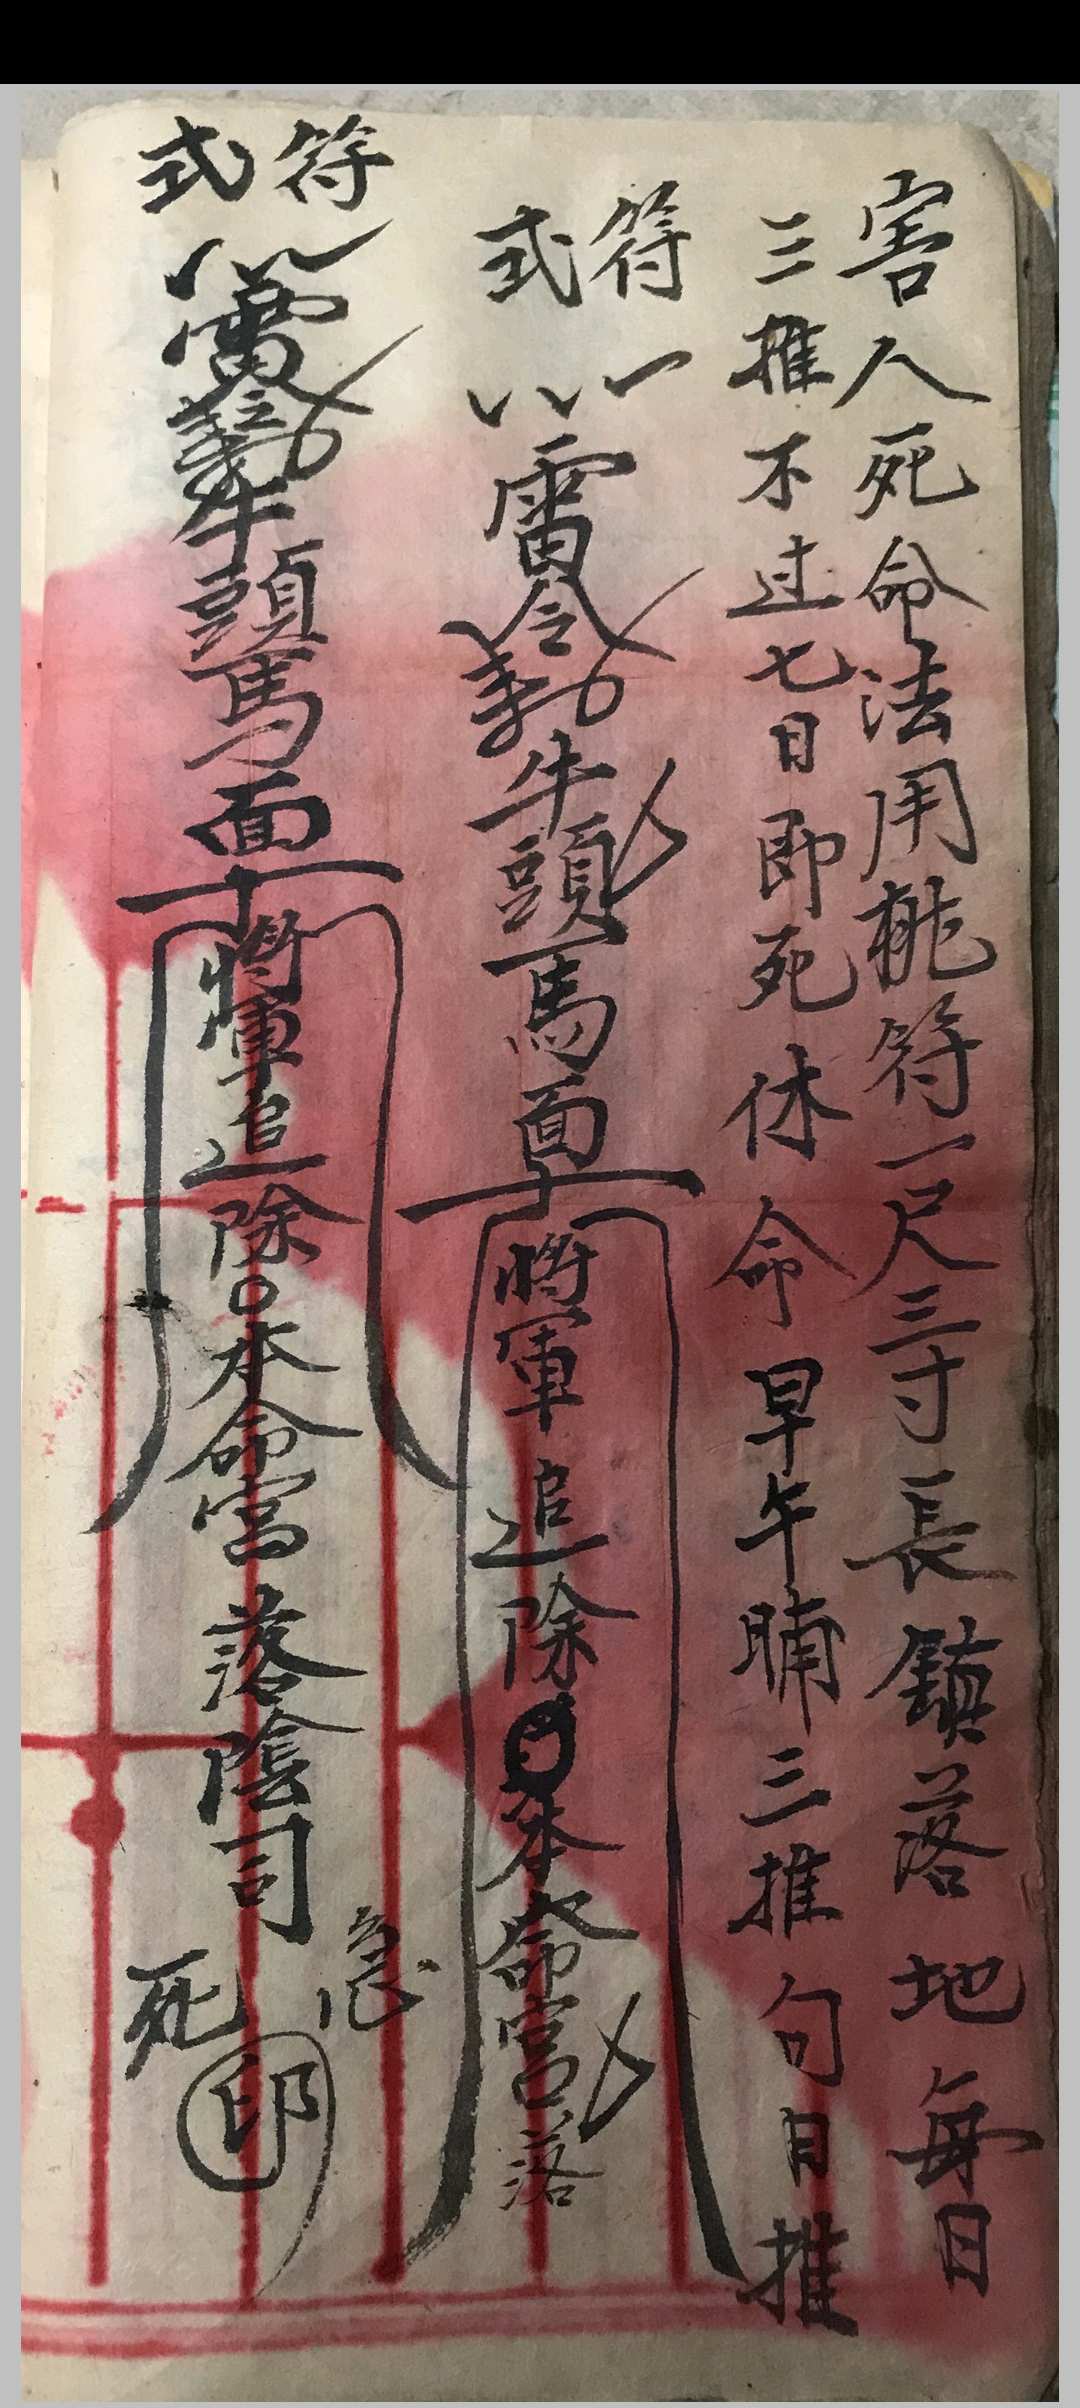 害人死命法用桃符一尺三寸長鎮落地每日
三推不过七日即死休命早午晡三推句日推
符式
雷令敕牛頭馬面
將軍追除本命宮落
符式
雷敕牛頭馬面
將軍追除〇本命宮落陰司
急
死
印